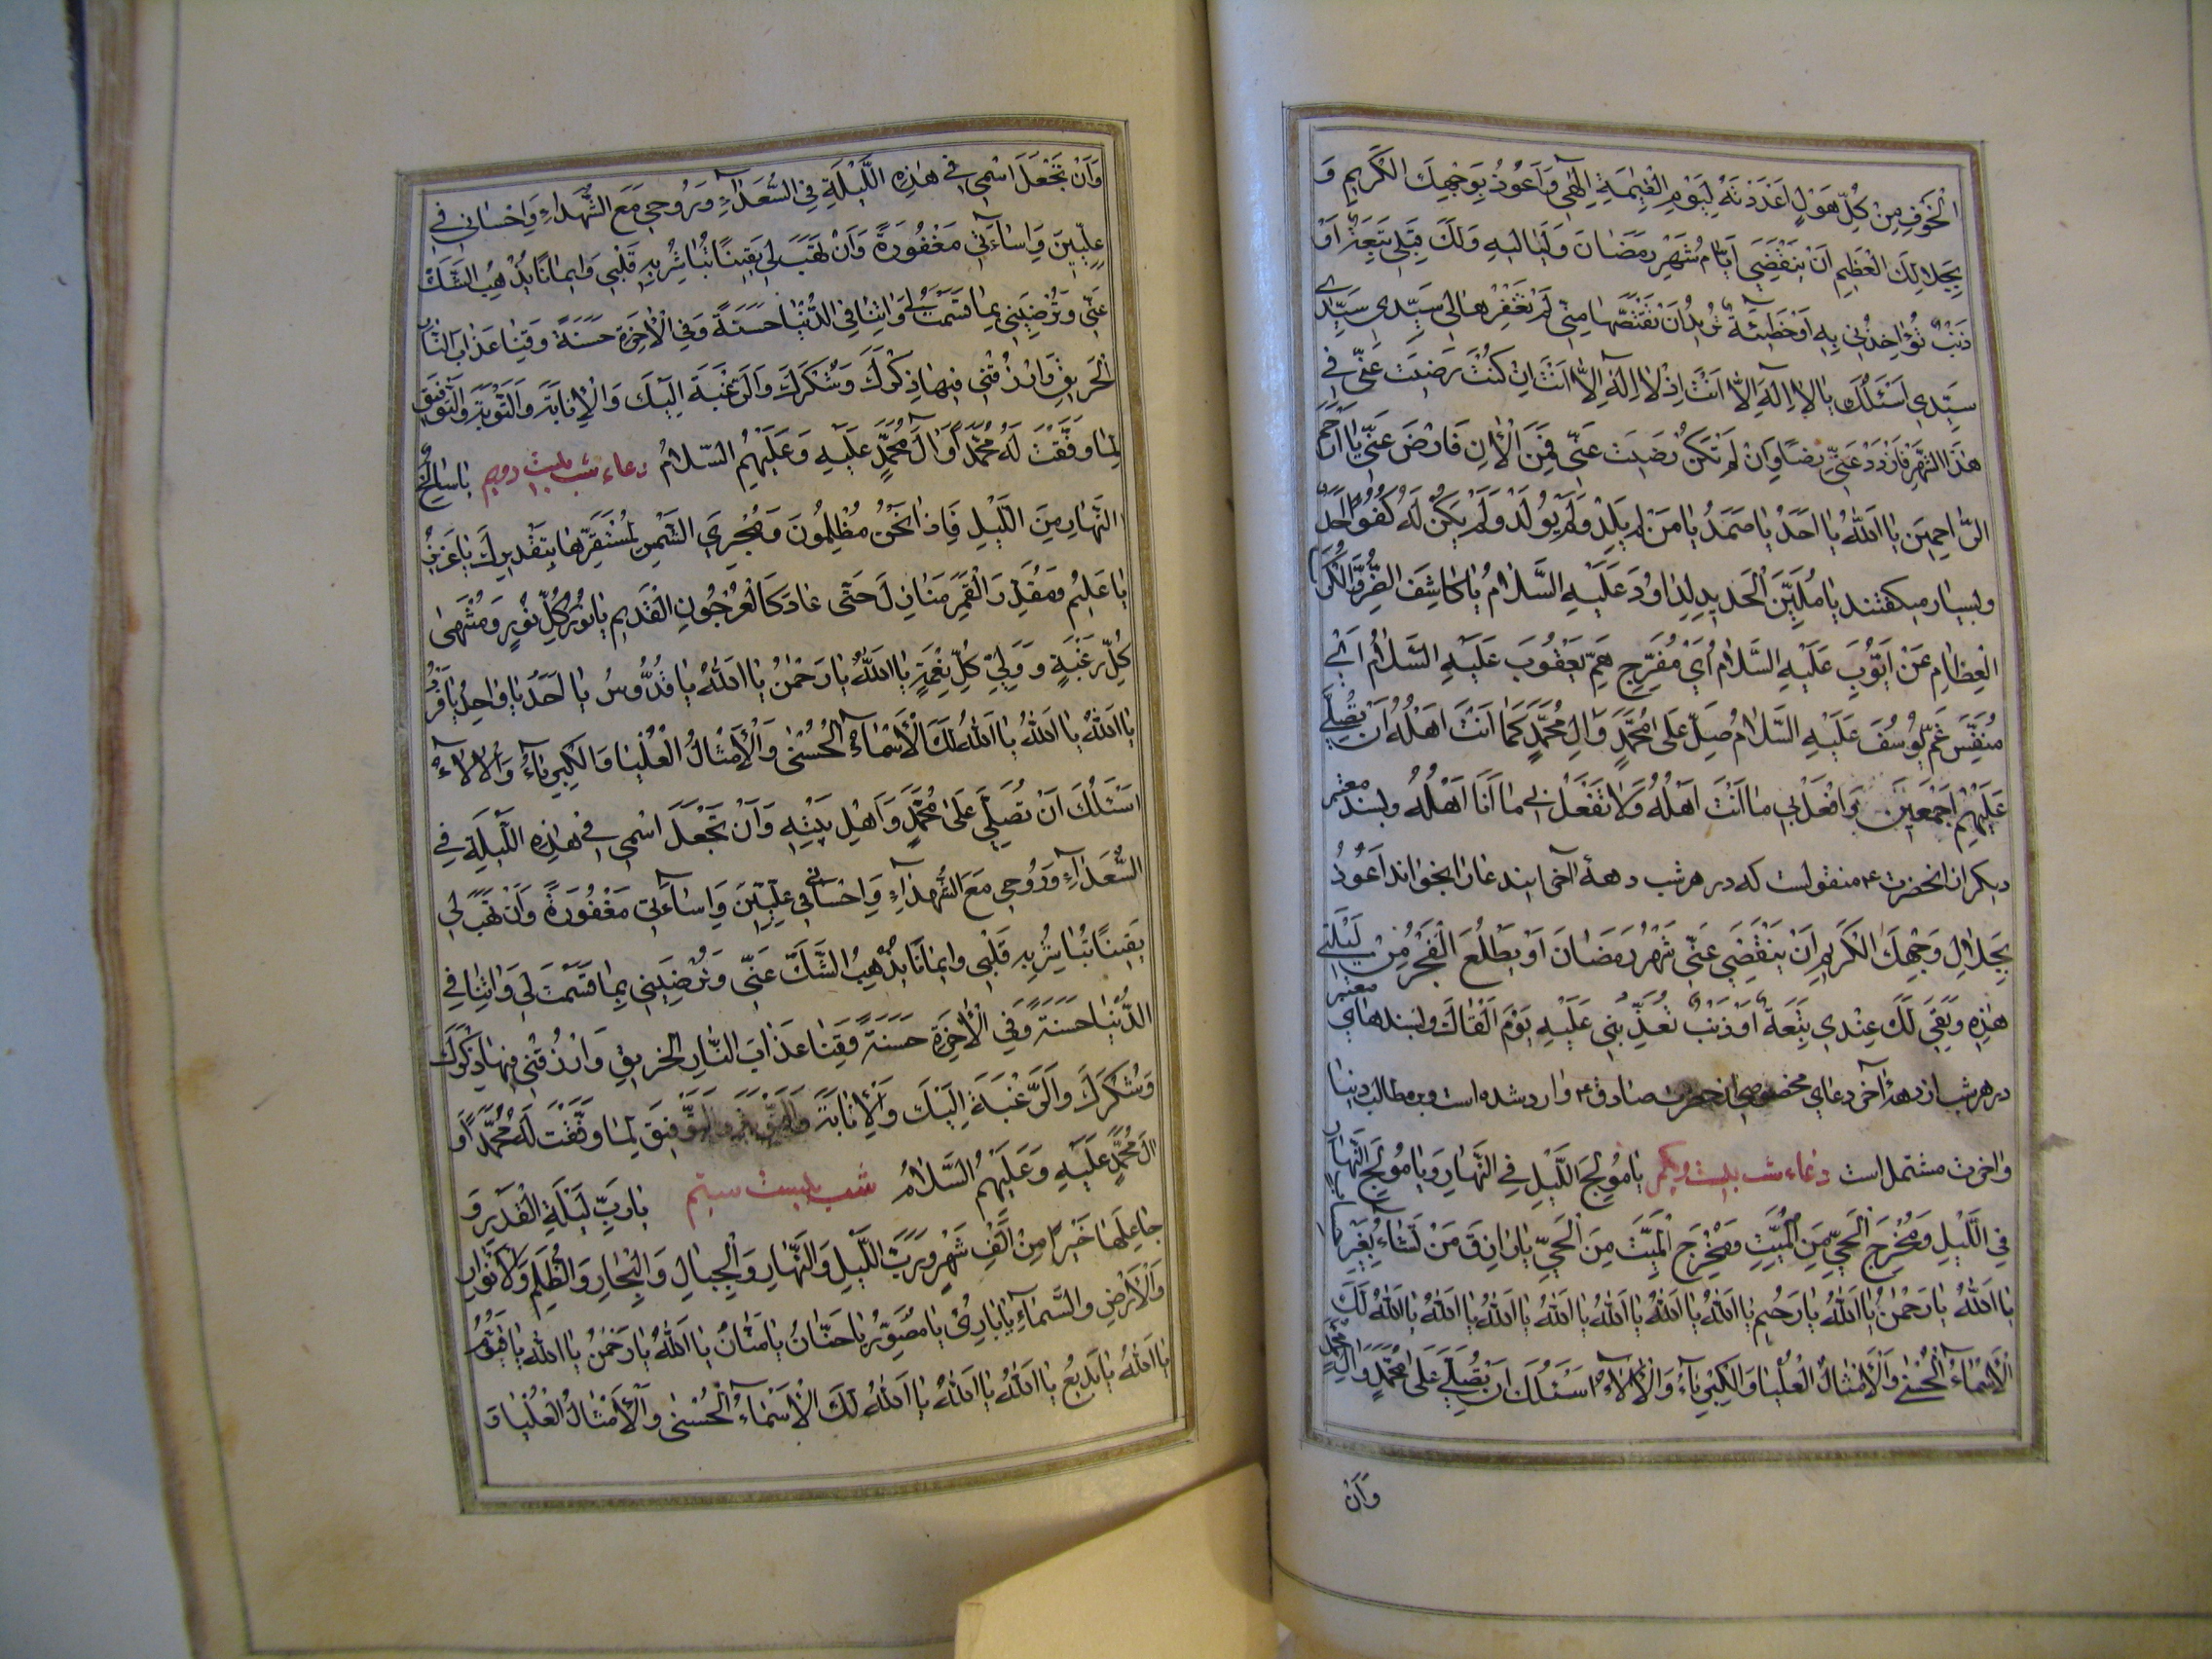 الْخَوْفِ مِنْ كُلِّ هَوْلٍ اَعْدَدْتَهُ لِيَوْمِ الْقِيٰمَةِ اِلٰهِي وَاَعُوذُ بِوَجْهِكَ الْكَرِيمِ وَ
بِجَلَالِكَ الْعَظِيمِ اَنْ يَنْقَضِيَ اَيَّامُ شَهْرِ رَمَضَانَ وَلَيَالِيهِ وَلَكَ قِبَلِي تَبِعَةٌ اَوْ
ذَنْبٌ تُؤٰاخِذُنِي بِهِ اَوْ خَطِيئَةٌ تُرِيدُ اَنْ تَقْتَصَّهَا مِنِّي لَمْ تَغْفِرْهَا لِي سَيِّدِي سَيِّدِي
سَيِّدِي اَسْئَلُكَ يَا لَا اِلٰهَ اِلَّا اَنْتَ اِذْ لَا اِلٰهَ اِلَّا اَنْتَ اِنْ كُنْتَ رَضِيتَ عَنِّي فِي
هٰذَا الشَّهْرِ فَازْدَدْ عَنِّي رِضًا وَاِنْ لَمْ تَكُنْ رَضِيتَ عَنِّي فَمِنَ الْاٰنِ فَارْضَ عَنِّي يَا اَرْحَمَ
الرَّاحِمِينَ يَا اَللّٰهُ يَا اَحَدُ يَا صَمَدُ يَا مَنْ لَمْ يَلِدْ وَلَمْ يُولَدْ وَلَمْ يَكُنْ لَهُ كُفُوًا اَحَدٌ
وبسیار میکفتند يَا مُلَيِّنَ الْحَدِيدِ لِدَاوُدَ عَلَيْهِ السَّلَامُ يَا كَاشِفَ الضُّرِّ وَالْكُرَبِ
الْعِظَامِ عَنْ اَيُّوبَ عَلَيْهِ السَّلَامُ اَيْ مُفَرِّجَ هَمِّ يَعْقُوبَ عَلَيْهِ السَّلَامُ اَيْ
مُنَفِّسَ غَمِّ يُوسُفَ عَلَيْهِ السَّلَامُ صَلِّ عَلَى مُحَمَّدٍ وَاٰلِ مُحَمَّدٍ كَمَا اَنْتَ اَهْلُهُ اَنْ تُصَلِّيَ
عَلَيْهِمْ اَجْمَعِينَ وَافْعَلْ بِي مَا اَنْتَ اَهْلُهُ وَلَا تَفْعَلْ بِي مَا اَنَا اَهْلُهُ وبسند معتبر
دیکر از انحضرت ع منقولست که در هر شب دههٔ آخر ایندعا را بخوانند اَعُوذُ
بِجَلَالِ وَجْهِكَ الْكَرِيمِ اَنْ يَنْقَضِيَ عَنِّي شَهْرُ رَمَضَانَ اَوْ يَطْلُعَ الْفَجْرُ مِنْ لَيْلَتِي
هٰذِهِ وَبَقِيَ لَكَ عِنْدِي تَبِعَةٌ اَوْ ذَنْبٌ تُعَذِّبُنِي عَلَيْهِ يَوْمَ اَلْقَاكَ وبسندهای معتبر
در هر شب از دههٔ آخر دعای مخصوصی از حضرت صادق ع وارد شده است و بر مطالب دنیا
واخرت مشتمل است دعاء شب بیست ویکم يَا مُولِجَ اللَّيْلِ فِي النَّهَارِ وَيَا مُولِجَ النَّهَارِ
فِي اللَّيْلِ وَمُخْرِجَ الْحَيِّ مِنَ الْمَيِّتِ وَمُخْرِجَ الْمَيِّتِ مِنَ الْحَيِّ يَا رَازِقَ مَنْ تَشَاءُ بِغَيْرِ حِسَابٍ
يَا اَللّٰهُ يَا رَحْمٰنُ يَا اَللّٰهُ يَا رَحِيمُ يَا اَللّٰهُ يَا اَللّٰهُ يَا اَللّٰهُ يَا اَللّٰهُ يَا اَللّٰهُ يَا اَللّٰهُ يَا اَللّٰهُ لَكَ
الْاَسْمَاءُ الْحُسْنٰى وَالْاَمْثَالُ الْعُلْيَا وَالْكِبْرِيَاءُ وَالْاٰلَاءُ اَسْئَلُكَ اَنْ تُصَلِّيَ عَلَى مُحَمَّدٍ وَاٰلِ مُحَمَّدٍ
وَاَنْ
وَاَنْ تَجْعَلَ اسْمِي فِي هٰذِهِ اللَّيْلَةِ فِي السُّعَدَاءِ وَرُوحِي مَعَ الشُّهَدَاءِ وَاِحْسَانِي فِي
عِلِّيِّينَ وَاِسَاءَتِي مَغْفُورَةً وَاَنْ تَهَبَ لِي يَقِينًا تُبَاشِرُ بِهِ قَلْبِي وَاِيمَانًا يُذْهِبُ الشَّكَّ
عَنِّي وَتُرْضِيَنِي بِمَا قَسَمْتَ لِي وَاٰتِنَا فِي الدُّنْيَا حَسَنَةً وَفِي الْاٰخِرَةِ حَسَنَةً وَقِنَا عَذَابَ النَّارِ
الْحَرِيقِ وَارْزُقْنِي فِيهَا ذِكْرَكَ وَشُكْرَكَ وَالرَّغْبَةَ اِلَيْكَ وَالْاِنَابَةَ وَالتَّوْبَةَ وَالتَّوْفِيقَ
لِمَا وَفَّقْتَ لَهُ مُحَمَّدًا وَاٰلَ مُحَمَّدٍ عَلَيْهِ وَعَلَيْهِمُ السَّلَامُ دعاء شب بیست دویم يَا سَالِخَ
النَّهَارِ مِنَ اللَّيْلِ فَاِذَا نَحْنُ مُظْلِمُونَ وَمُجْرِيَ الشَّمْسِ لِمُسْتَقَرِّهَا بِتَقْدِيرِكَ يَا عَزِيزُ
يَا عَلِيمُ وَمُقَدِّرَ الْقَمَرِ مَنَازِلَ حَتّٰى عَادَ كَالْعُرْجُونِ الْقَدِيمِ يَا نُورَ كُلِّ نُورٍ وَمُنْتَهٰى
كُلِّ رَغْبَةٍ وَوَلِيَّ كُلِّ نِعْمَةٍ يَا اَللّٰهُ يَا رَحْمٰنُ يَا اَللّٰهُ يَا قُدُّوسُ يَا اَحَدُ يَا وَاحِدُ يَا فَرْدُ
يَا اَللّٰهُ يَا اَللّٰهُ يَا اَللّٰهُ لَكَ الْاَسْمَاءُ الْحُسْنٰى وَالْاَمْثَالُ الْعُلْيَا وَالْكِبْرِيَاءُ وَالْاٰلَاءُ
اَسْئَلُكَ اَنْ تُصَلِّيَ عَلٰى مُحَمَّدٍ وَاَهْلِ بَيْتِهِ وَاَنْ تَجْعَلَ اسْمِي فِي هٰذِهِ اللَّيْلَةِ فِي
السُّعَدَاءِ وَرُوحِي مَعَ الشُّهَدَاءِ وَاِحْسَانِي فِي عِلِّيِّينَ وَاِسَاءَتِي مَغْفُورَةً وَاَنْ تَهَبَ لِي
يَقِينًا تُبَاشِرُ بِهِ قَلْبِي وَاِيمَانًا يُذْهِبُ الشَّكَّ عَنِّي وَتُرْضِيَنِي بِمَا قَسَمْتَ لِي وَاٰتِنَا فِي
الدُّنْيَا حَسَنَةً وَفِي الْاٰخِرَةِ حَسَنَةً وَقِنَا عَذَابَ النَّارِ الْحَرِيقِ وَارْزُقْنِي فِيهَا ذِكْرَكَ
وَشُكْرَكَ وَالرَّغْبَةَ اِلَيْكَ وَالْاِنَابَةَ وَالتَّوْبَةَ وَالتَّوْفِيقَ لِمَا وَفَّقْتَ لَهُ مُحَمَّدًا وَ
اٰلَ مُحَمَّدٍ عَلَيْهِ وَعَلَيْهِمُ السَّلَامُ شب بیست سیّم يَا رَبَّ لَيْلَةِ الْقَدْرِ وَ
جَاعِلَهَا خَيْرًا مِنْ اَلْفِ شَهْرٍ وَرَبَّ اللَّيْلِ وَالنَّهَارِ وَالْجِبَالِ وَالْبِحَارِ وَالظُّلَمِ وَالْاَنْوَارِ
وَالْاَرْضِ وَالسَّمَاءِ يَا بَارِئُ يَا مُصَوِّرُ يَا حَنَّانُ يَا مَنَّانُ يَا اَللّٰهُ يَا رَحْمٰنُ يَا اَللّٰهُ يَا قَيُّومُ
يَا اَللّٰهُ يَا بَدِيعُ يَا اَللّٰهُ يَا اَللّٰهُ يَا اَللّٰهُ لَكَ الْاَسْمَاءُ الْحُسْنٰى وَالْاَمْثَالُ الْعُلْيَا وَ